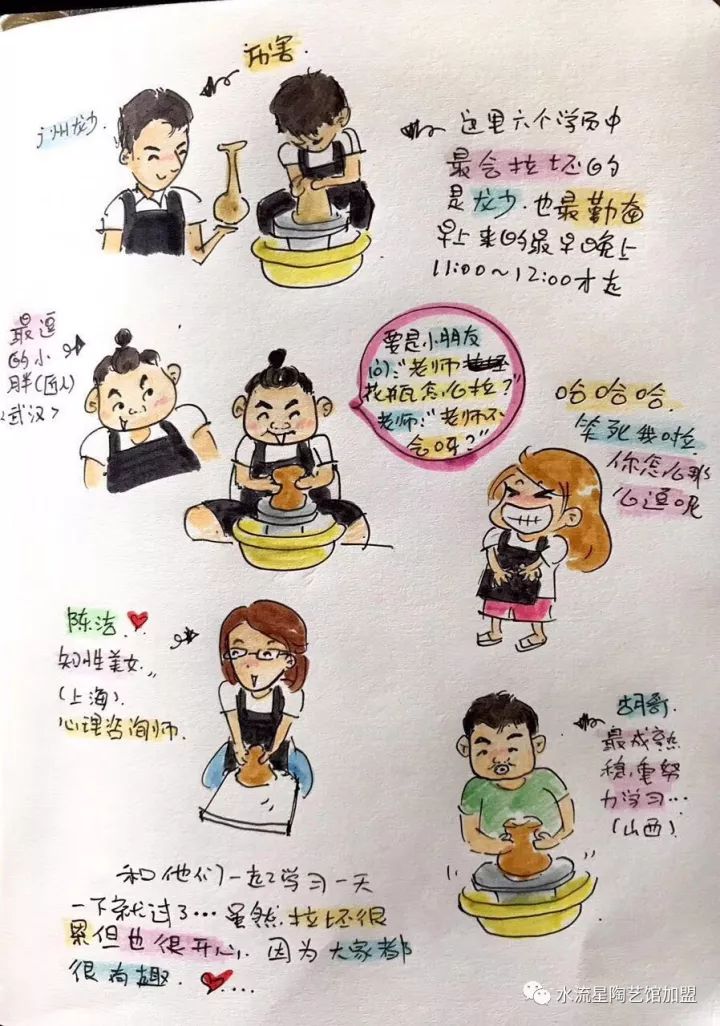 厉害.
广州龙少.
这里六个学员中
最会拉坯的
是龙少.也最勤奋
早上来的最早晚上
11:00~12:00才走
最逗
的小
胖(匠人)
<武汉>
要是小朋友
问:"老师
我瓶怎么拉?"
老师:"老师不
会呀?"
哈哈哈.
笑死我啦
你怎么那
么逗呢
陈洁
知性美女..
(上海).
心理咨询师.
胡哥.
最成熟
稳重努
力学习…
(山西)
和他们一起学习一天
一下就过了…虽然拉坯很
累但也很开心.因为大家都
很有趣.
水流星陶艺馆加盟